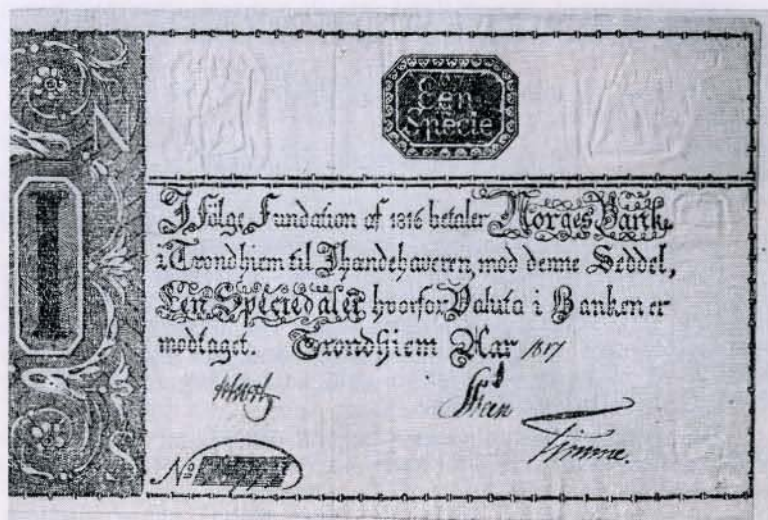 Een
Specie
N
I
I følge Fundation af 1816 betaler Norges Bank
i Trondhiem til Ihændehaveren, mod denne Seddel,
Een Speciedaler hvorfor Valuta i Banken er
modtaget. Trondhiem Aar 1817
Steen
Finne.
S
No